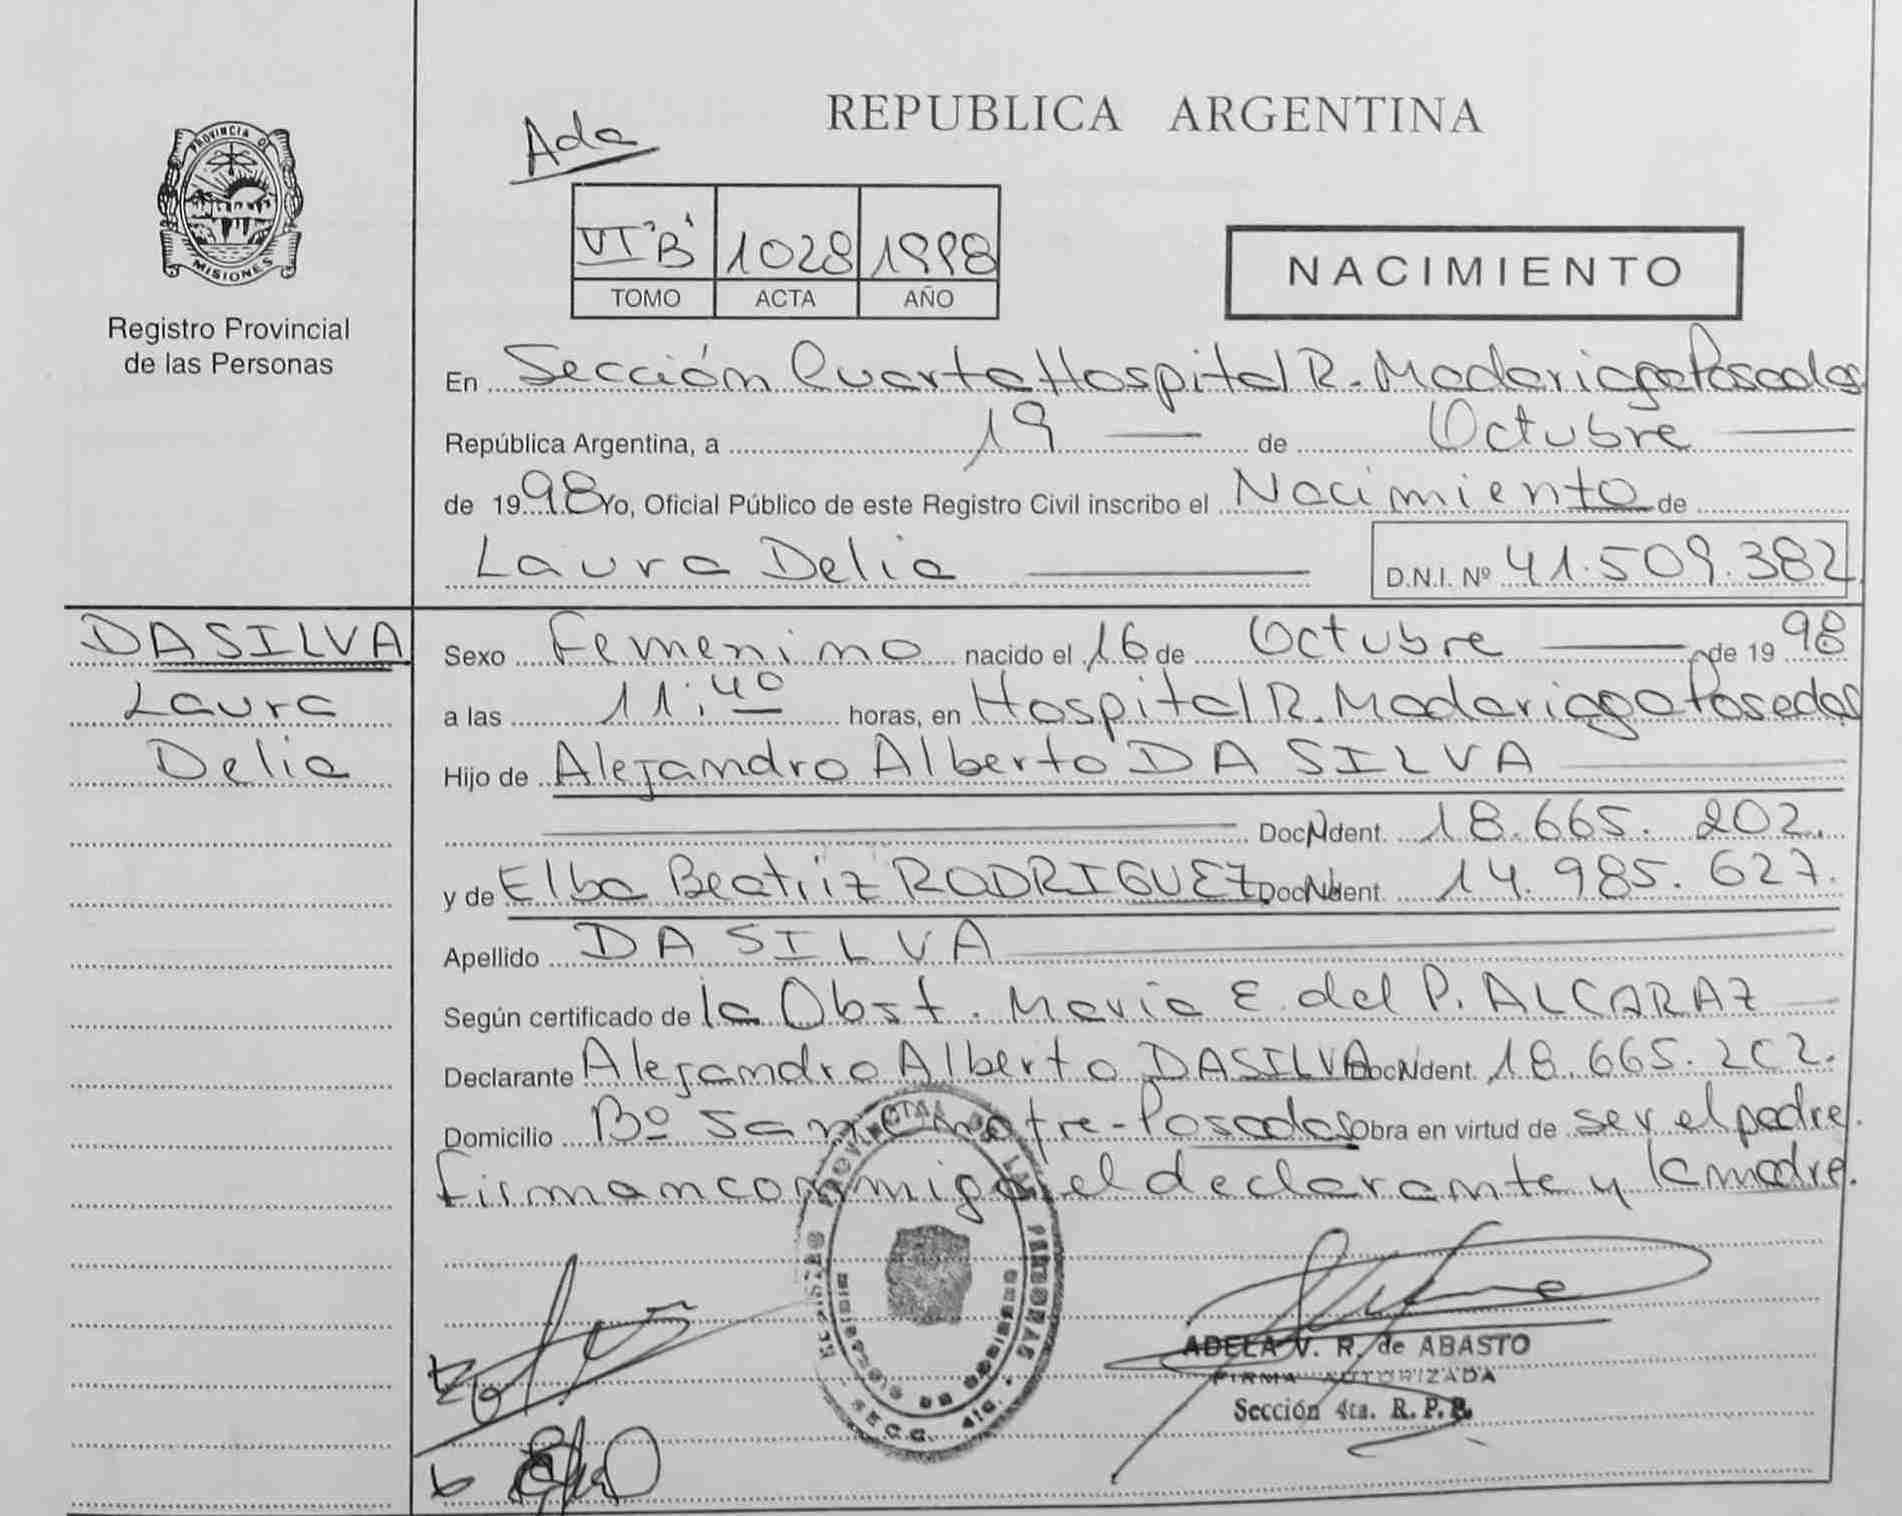 REPUBLICA ARGENTINA
Ada
PROVINCIA D
MISIONES
Registro Provincial
de las Personas
VI "B" 1028 1998
TOMO ACTA AÑO
NACIMIENTO
En Sección Cuarta Hospital R. Madariaga Posadas
República Argentina, a 19 de Octubre
de 1998 Yo, Oficial Público de este Registro Civil inscribo el Nacimiento de
Laura Delia D.N.I. Nº 41.509.382
DASILVA
Laura
Delia
Sexo Femenino nacido el 16 de Octubre de 19 98
a las 11:40 horas, en Hospital R. Madariaga Posadas
Hijo de Alejandro Alberto DA SILVA
Doc. Ident. 18.665.202.
y de Elba Beatriz RODRIGUEZ Doc. Ident. 14.985.627.
Apellido DA SILVA
Según certificado de la Obst. Maria E. del P. ALCARAZ
Declarante Alejandro Alberto DASILVA Doc. Ident. 18.665.202.
Domicilio Bº San Onofre - Posadas Obra en virtud de ser el padre.
Firman conmigo el declarante y la madre.
REGISTRO PROVINCIAL DE LAS PERSONAS
MINISTERIO DE GOBIERNO
SECC. 4ta.
ADELA V. R. de ABASTO
FIRMA AUTORIZADA
Sección 4ta. R. P. P.